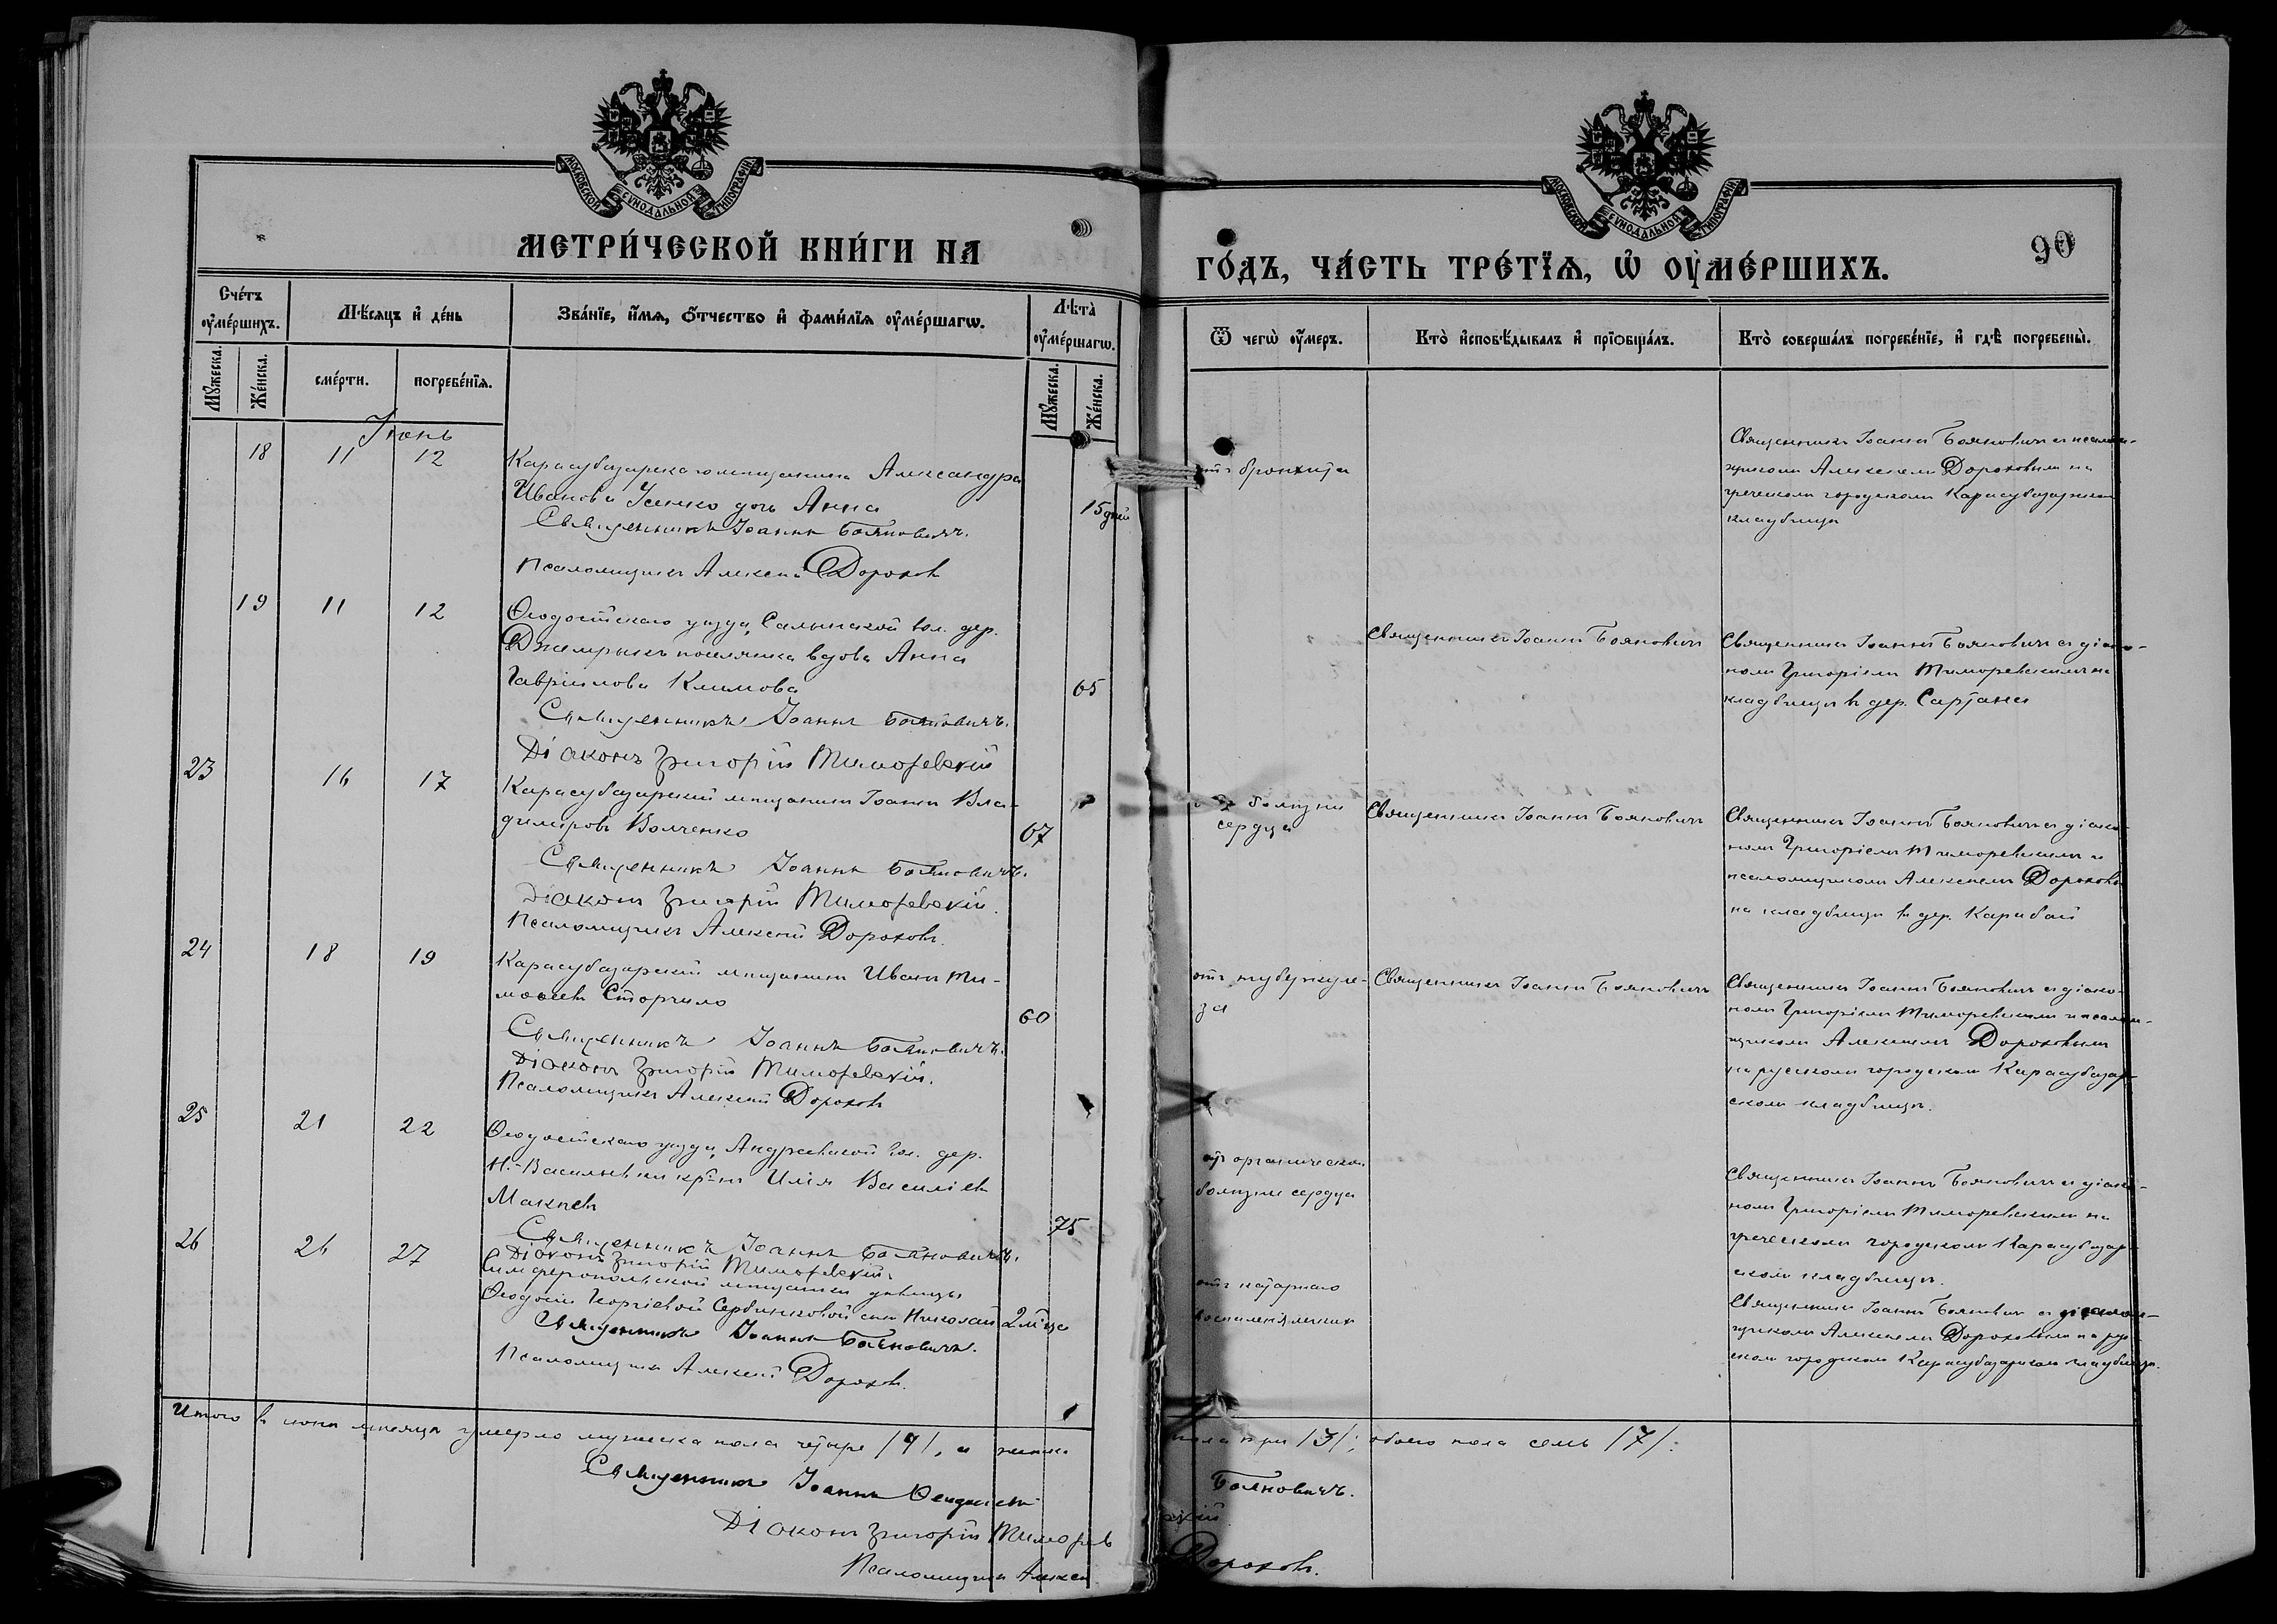 МОСКОВСКОЙ СѴНОДАЛЬНОЙ ТИПОГРАФІИ
МЕТРИ́ЧЕСКОЙ КНИ́ГИ НА
Счетъ ᲂу҆ме́ршихъ.
Мѣ́сяцъ и҆ де́нь
Зва́нїе, и҆́мѧ, ѻ҆́тчество и҆ фами́лїѧ ᲂу҆ме́ршагѡ.
Лѣта̀ ᲂу҆ме́ршагѡ.
Мꙋ́жеска.
Же́нска.
сме́рти.
погребе́нїѧ.
Мꙋ́жеска.
Же́нска.
Іюнь
18 11 12 Карасубазарскаго мѣщанина Александра
Иванова Усенко дочь Анна
15 дней
Священникъ Іоаннъ Бояновичъ.
Псаломщикъ Алексѣй Дороховъ
19 11 12 Ѳеодосійскаго уѣзда, Салынской вол. дер.
поселянка вдова Анна
Гавріилова Климова 65
Священникъ Іоаннъ Бояновичъ.
Діаконъ Григорій Тиморевскій
23 16 17 Карасубазарскій мѣщанинъ Іоаннъ Вла-
диміровъ Волченко 67
Священникъ Іоаннъ Бояновичъ.
Діаконъ Григорій Тиморевскій.
Псаломщикъ Алексѣй Дороховъ.
24 18 19 Карасубазарскій мѣщанинъ Иванъ Ти-
моѳеевъ Сторчило 60
Священникъ Іоаннъ Бояновичъ.
Діаконъ Григорій Тиморевскій.
Псаломщикъ Алексѣй Дороховъ
25 21 22 Ѳеодосійскаго уѣзда, Андреевской вол. дер.
Н.-Васильевки кр-нъ Илія Василіевъ
75
Священникъ Іоаннъ Бояновичъ.
Діаконъ Григорій Тиморевскій.
26 26 27 Симферопольской мѣщанки дѣвицы
Ѳеодосіи Сербинковой сынъ Николай 2 м-ца
Священникъ Іоаннъ Бояновичъ.
Псаломщикъ Алексѣй Дороховъ.
Итого въ іюнѣ мѣсяцѣ умерло мужеска пола четыре /4/, а женска
Священникъ Іоаннъ
Діаконъ Григорій Тиморев
Псаломщикъ Алексѣ
МОСКОВСКОЙ СѴНОДАЛЬНОЙ ТИПОГРАФІИ
90
ГО́ДЪ, ЧА́СТЬ ТРЕ́ТЇѦ, Ѡ҆ ОУ҆МЕ́РШИХЪ.
Ѿ чегѡ̀ ᲂу҆́меръ.
Кто̀ и҆сповѣ́дывалъ и҆ прїѻбща́лъ.
Кто̀ соверша́лъ погребе́нїе, и҆ гдѣ̀ погребены̀.
отъ бронхита
Священникъ Іоаннъ Бояновичъ съ псалом-
щикомъ Алексѣемъ Дороховымъ на
греческомъ городскомъ Карасубазарском
кладбищѣ
Священникъ Іоаннъ Бояновичъ
Священникъ Іоаннъ Бояновичъ съ діако-
номъ Григоріемъ Тиморевскимъ на
кладбищѣ въ дер. Сартана
отъ болѣзни
сердца
Священникъ Іоаннъ Бояновичъ
Священникъ Іоаннъ Бояновичъ съ діако-
номъ Григоріемъ Тиморевскимъ и
псаломщикомъ Алексѣемъ Дорохов
на кладбищѣ въ дер. Карабай
отъ туберкуле-
за
Священникъ Іоаннъ Бояновичъ
Священникъ Іоаннъ Бояновичъ съ діако-
номъ Григоріемъ Тиморевскимъ и псалом-
щикомъ Алексѣемъ Дороховымъ
на русскомъ городскомъ Карасубазар-
скомъ кладбищѣ.
отъ органической
болѣзни сердца
Священникъ Іоаннъ Бояновичъ съ діако-
номъ Григоріемъ Тиморевскимъ на
греческомъ городскомъ Карасубазар-
скомъ кладбищѣ.
отъ катарнаго
воспаленія легкихъ
Священникъ Іоаннъ Бояновичъ съ псалом-
щикомъ Алексѣемъ Дороховымъ на рус-
скомъ городскомъ Карасубазарскомъ кладбищѣ.
пола три /3/; обоего пола семь /7/:
Бояновичъ.
скій.
Дороховъ.